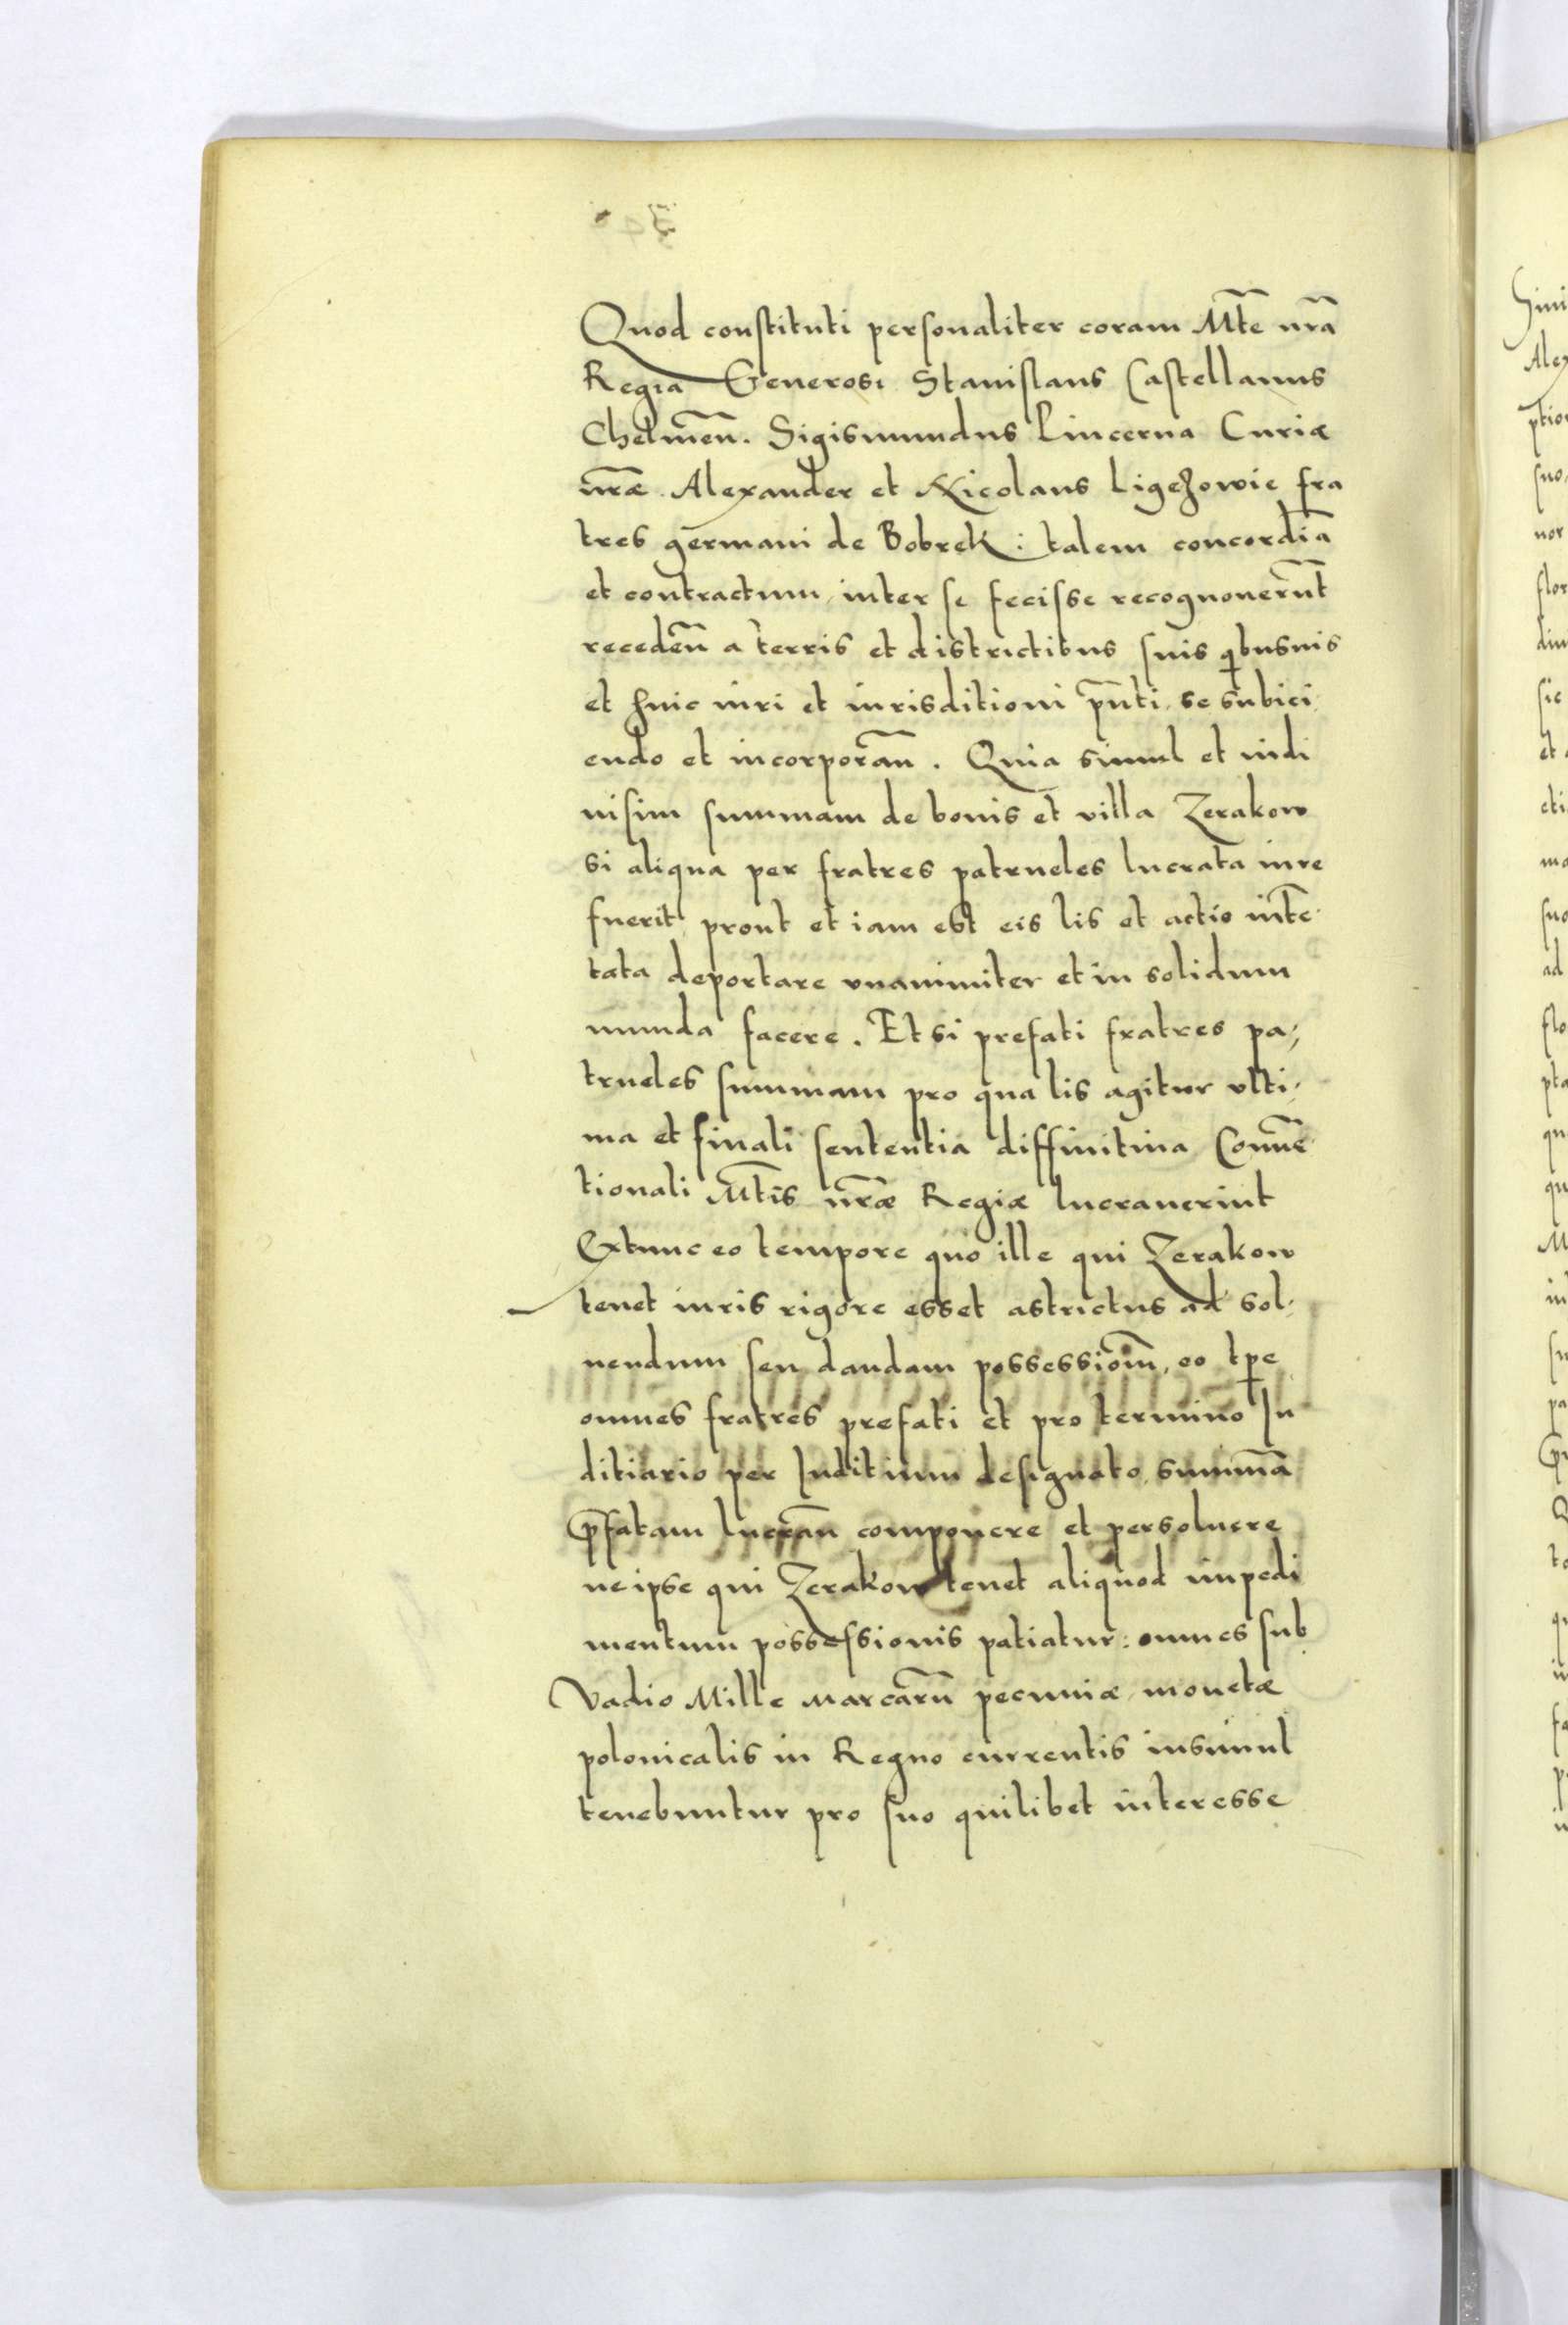 Quod constituti personaliter coram Mte nrã
Regia Generosi Stanislaus Castellanus
Chelmeñ. Sigismundus Pincerna Curiæ
nræ Alexander et Nicolaus Ligezowie fra
tres germani de Bobrek: talem concordiã
et contractum inter se fecisse recognouerũt
recedeñ a terris et districtibus suis qibusuis
et huic iuri et iurisditioni pñti se subici
endo et incorporañ. Quia simul et indi
uisim summam de bonis et villa Zerakow
si aliqua per fratres patrueles lucrata iure
fuerit prout et iam est eis lis et actio intẽ
tata deportare vnanimiter et in solidum
munda facere. Et si prefati fratres pa,
trueles summam pro qua lis agitur vlti,
ma et finali sententia diffinitiua Conuẽ
tionali Mtis nræ Regiæ lucrauerint
Extunc eo tempore quo ille qui Zerakow
tenet iuris rigore esset astrictus ad sol,
uendum seu dandam possessioĩm, eo tpe
omnes fratres prefati et pro termino Iu
ditiario per Iuditium designato summã
p̃fatam lucrañ componere et persoluere
ne ipse qui Zerakow tenet aliquod impedi
mentum possessionis patiatur: omnes sub
Vadio Mille marcarũ pecuniæ monetæ
polonicalis in Regno currentis insimul
tenebuntur pro suo quilibet interesse